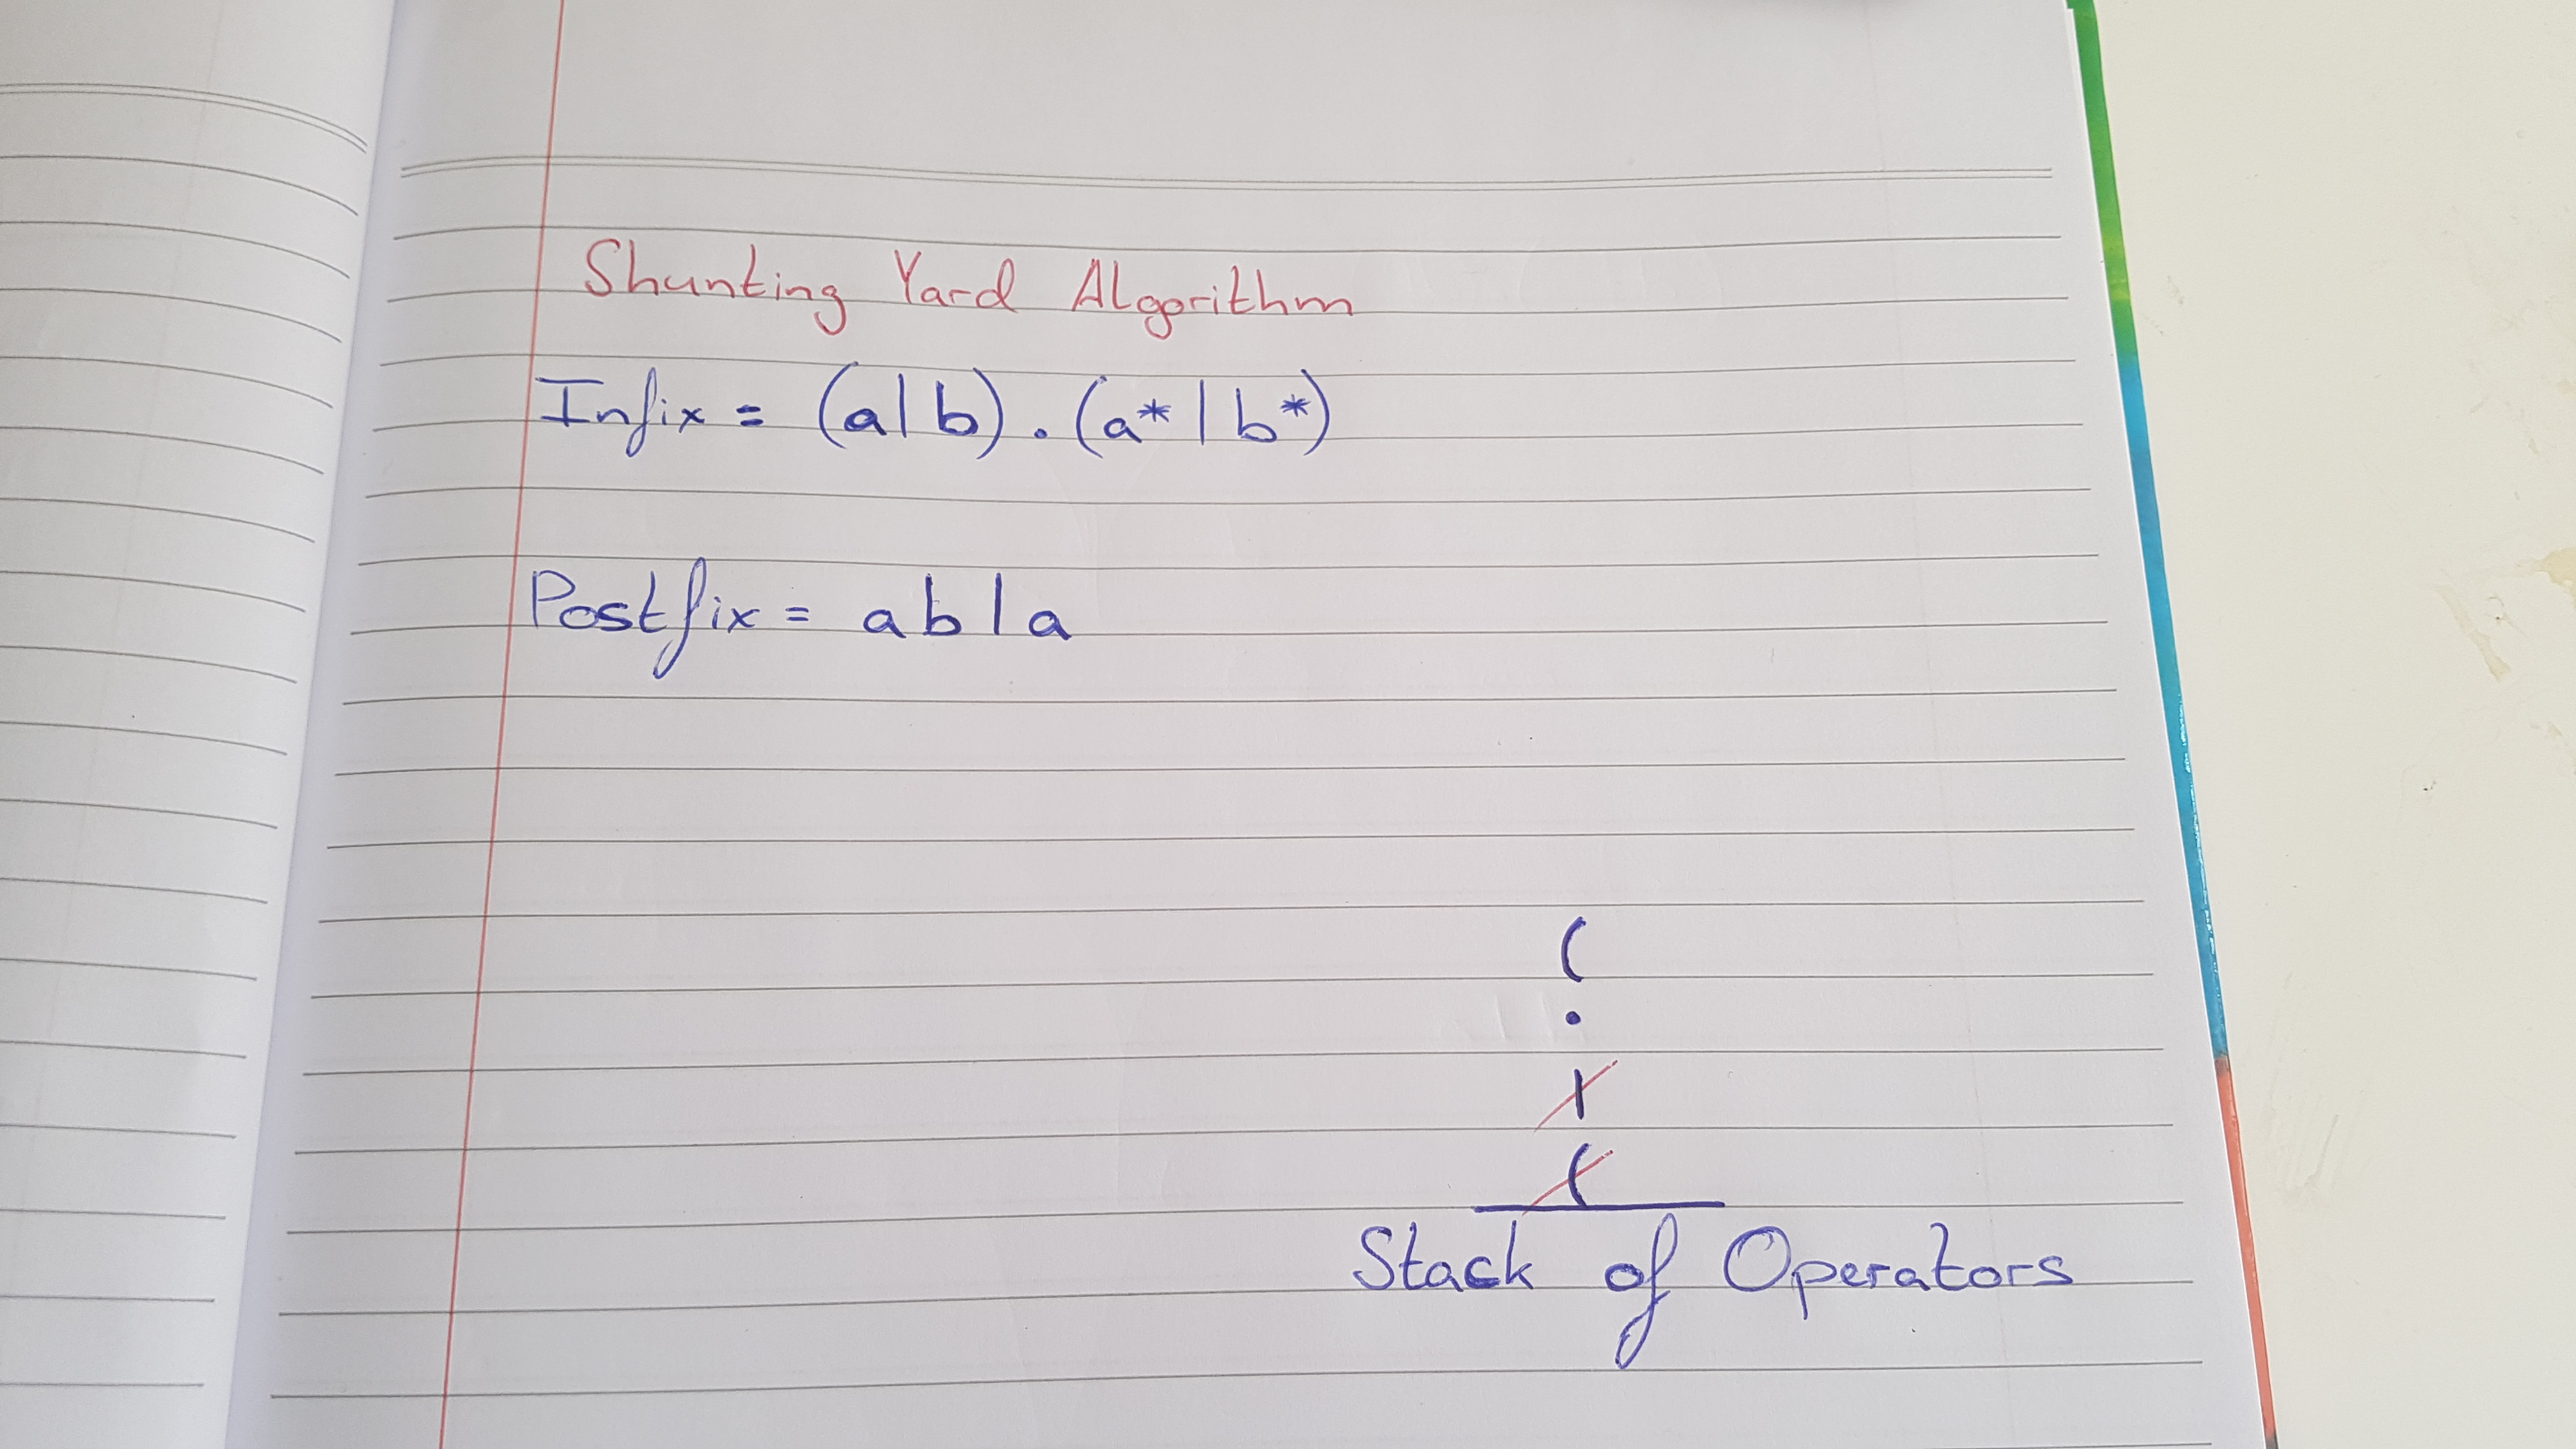 Shunting Yard Algorithm
Infix = (a|b).(a*|b*)
Postfix = ab|a
(
.
|
(
Stack of Operators